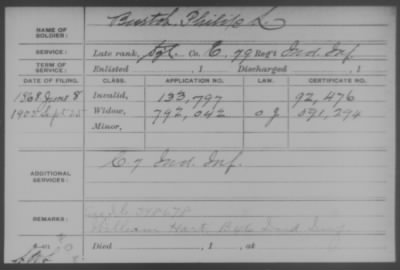 NAME OF SOLDIER: Philipp L.
SERVICE: Late rank, Sgt. Co. E, 79 Reg't Ind. Inf.
TERM OF SERVICE: Enlisted , 1 Discharged , 1
DATE OF FILING. CLASS. APPLICATION NO. LAW. CERTIFICATE NO.
1868 June 8 Invalid, 133,797 92,476
Sept 25 Widow, 792,042 591,294
Minor,
ADDITIONAL SERVICES: E. 7 Ind. Inf.
REMARKS:
William Hart
Died , 1 , at